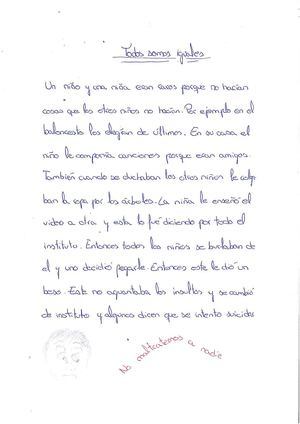 Todos somos iguales
Un niño y una niña eran raros porque no hacían
cosas que los otros niños no hacían. Por ejemplo en el
baloncesto los elegían de últimos. En su casa el
niño le componía canciones porque eran amigos.
También cuando se duchaban los otros niños le colga
ban la ropa por los árboles. La niña le enseñó el
video a otra y esta lo fué diciendo por todo el
instituto. Entonces todos los niños se burlaban de
el y uno decidió pegarle. Entonces este le dió un
beso. Este no aguantaba los insultos y se cambió
de instituto y algunos dicen que se intento suicidar
No maltratemos a nadie